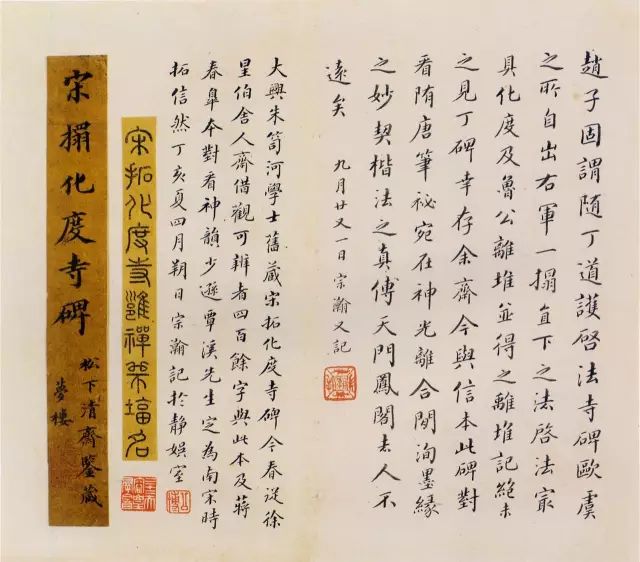 趙子固謂隨丁道護啓法寺碑歐虞
之所自出右軍一搨直下之法啓法寂
具化度及魯公離堆並得之離堆記絕未
之見丁碑幸存余齋今與信本此碑對
看隋唐筆祕宛在神光離合閒洵墨緣
之妙契楷法之真傳天門鳳閣去人不
遠矣
九月廿又一日宗瀚又記
大興朱笥河學士舊藏宋拓化度寺碑今春從徐
星伯舍人齋借觀可辨者四百餘字與此本及蔣
春皐本對看神韻少遜覃溪先生定為南宋時
拓信然丁亥夏四月朔日宗瀚記於静娛室
宋拓化度寺邕禪師塔銘
宋搨化度寺碑
松下清齋鑒藏
夢樓